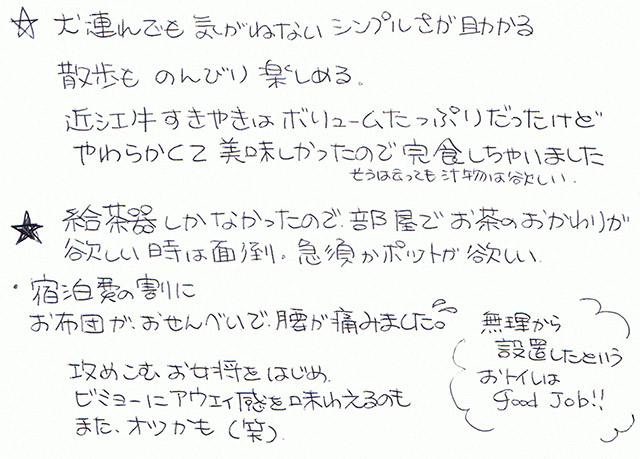 ☆ 犬連れでも 気がねない シンプルさが助かる
散歩も のんびり 楽しめる。
近江牛すきやきは ボリュームたっぷりだったけど
やわらかくて 美味しかったので 完食しちゃいました
そうは云っても 汁物は欲しい.
★ 給茶器しかなかったので、部屋で お茶のおかわりが
欲しい時は面倒。急須かポットが 欲しい
・宿泊費の割に
お布団が、おせんべいで、腰が痛みました。
無理から
設置したという
おトイレは
Good Job!!
攻めこむ お女将をはじめ、
ビミョーにアウェイ感を味わえるのも
また、オツかも(笑).